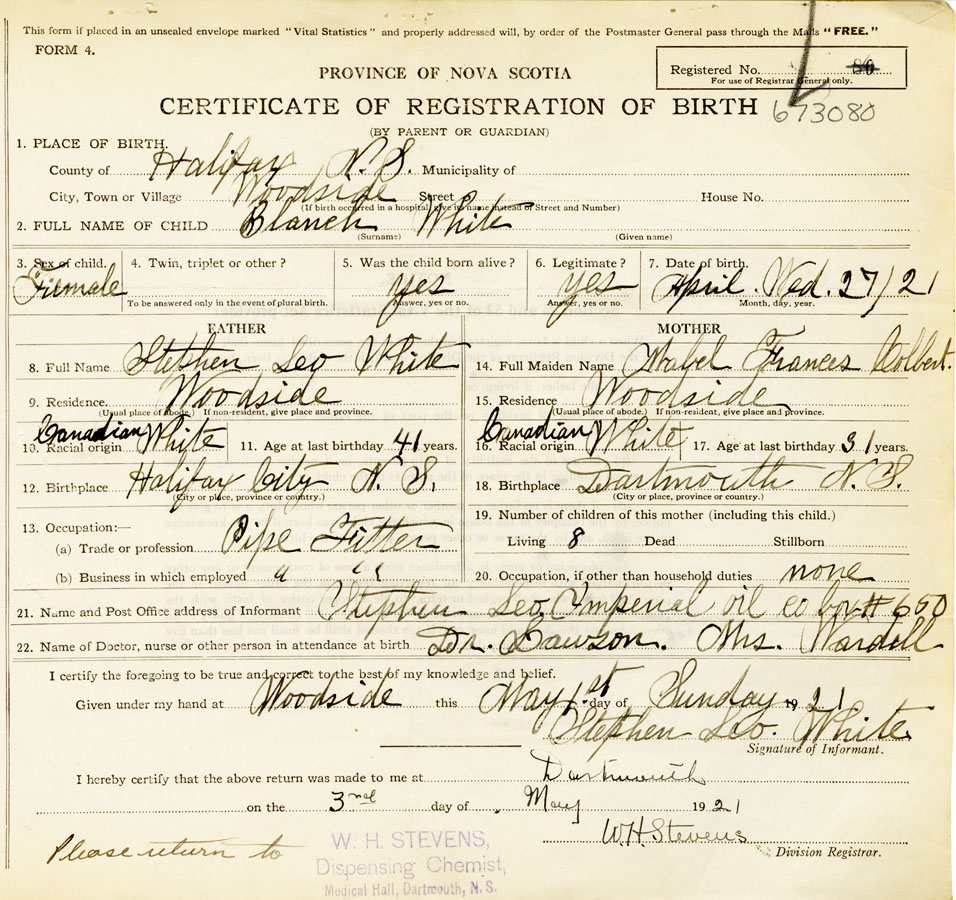 This form if placed in an unsealed envelope marked "Vital Statistics" and properly addressed will, by order of the Postmaster General pass through the Mails "FREE."
FORM 4.
PROVINCE OF NOVA SCOTIA
Registered No. 80
For use of Registrar General only.
CERTIFICATE OF REGISTRATION OF BIRTH 673080
(BY PARENT OR GUARDIAN)
1. PLACE OF BIRTH.
County of Halifax N.S. Municipality of
City, Town or Village Woodside Street House No.
(If birth occurred in a hospital, give its name instead of Street and Number)
2. FULL NAME OF CHILD Blanch White
(Surname) (Given name)
3. Sex of child. 4. Twin, triplet or other? 5. Was the child born alive? 6. Legitimate? 7. Date of birth.
Fiemale yes yes April. Wed. 27/21
To be answered only in the event of plural birth. Answer, yes or no. Answer, yes or no. Month, day, year.
FATHER MOTHER
8. Full Name Stephen Leo White 14. Full Maiden Name Mabel Frances Colbert.
9. Residence. Woodside 15. Residence Woodside
(Usual place of abode.) If non-resident, give place and province. (Usual place of abode.) If non-resident, give place and province.
10. Racial origin Canadian White 11. Age at last birthday 41 years. 16. Racial origin Canadian White 17. Age at last birthday 31 years.
12. Birthplace Halifax City N.S. 18. Birthplace Dartmouth N.S.
(City or place, province or country.) (City or place, province or country.)
13. Occupation:— 19. Number of children of this mother (including this child.)
(a) Trade or profession Pipe Fitter Living 8 Dead Stillborn
(b) Business in which employed " " 20. Occupation, if other than household duties none
21. Name and Post Office address of Informant Stephen Leo, Imperial oil co box # 650
22. Name of Doctor, nurse or other person in attendance at birth Dr. Lawson. Mrs. Wardell
I certify the foregoing to be true and correct to the best of my knowledge and belief.
Given under my hand at Woodside this May 1st day of Sunday 1921
Stephen Leo. White
Signature of Informant.
I hereby certify that the above return was made to me at Dartmouth
on the 3rd day of May 1921
W.H. Stevens
Division Registrar.
Please return to
W. H. STEVENS,
Dispensing Chemist,
Medical Hall, Dartmouth, N. S.